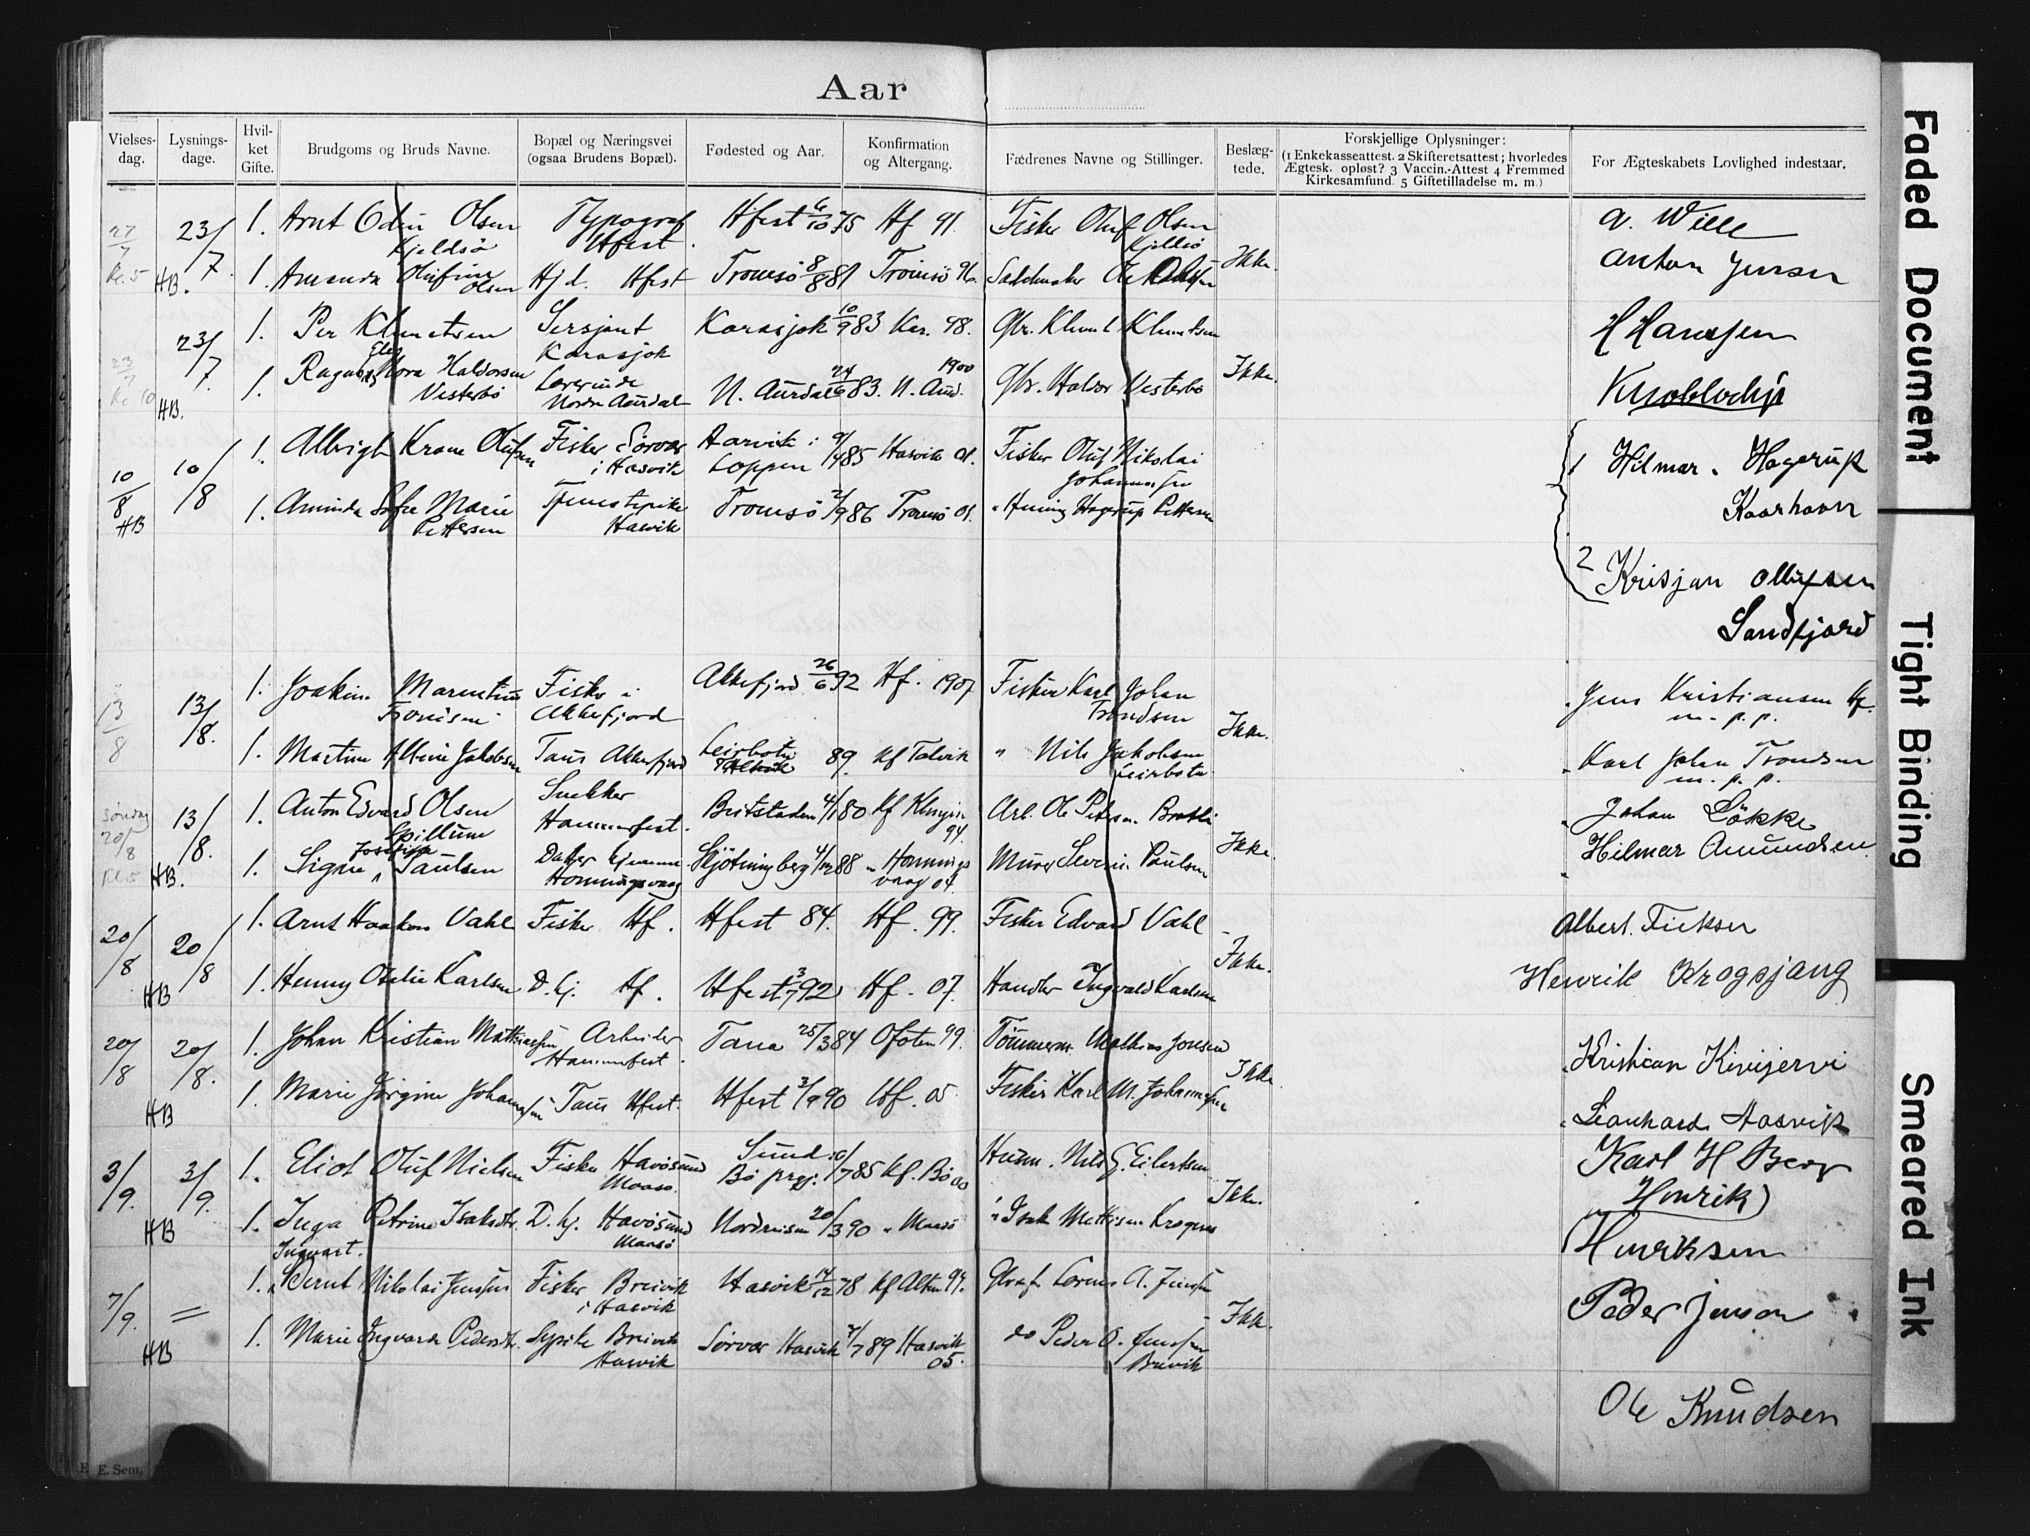 Aar
Vielses-dag.
Lysnings-dage.
Hvil-ket Gifte.
Brudgoms og Bruds Navne.
Bopæl og Næringsvei (ogsaa Brudens Bopæl).
Fødested og Aar.
Konfirmation og Altergang.
Fædrenes Navne og Stillinger.
Beslæg-tede.
Forskjellige Oplysninger: (1 Enkekasseattest. 2 Skifteretsattest; hvorledes Ægtesk. opløst? 3 Vaccin.-Attest 4 Fremmed Kirkesamfund. 5 Giftetilladelse m. m.)
For Ægteskabets Lovlighed indestaar.
27/7 kl. 5 23/7. 1. Arnt Odin Olsen Kjeldsö Typograf Hfest. Hfest 6/10 75 Hf 91. Fisker Oluf Olsen Kjeldsö Ikke. A. Wille
HB. 1. Amanda Olufine Olsen Hjd. Hfest Tromsö 8/8 81 Tromsö 96. Anton Jensen
23/7 kl 10 23/7. 1. Per Klemetsen Sersjant Karasjok Karasjok 10/9 83 Kar. 98. Gbr. Klemet Klemetsen Ikke. H Hanssen
HB. 1. Nora Haldorsen Vesterbö Lærerinde Nordre Aurdal N. Aurdal 24/6 83. N. Aurd. 1900 Gbr. Haldor Vesterbö
10/8 HB 10/8 1. Albrigt Krane Olufsen Fisker Sörvær i Hasvik Aarvik i Loppen 9/4 85 Hasvik 01. Fisker Oluf Nikolai Johannessen 1 Hilmar. Hagerup Kaarhavn
1. Aminda Sofie Marie Pettersen Tjenestepike Hasvik Tromsö 2/9 86 Tromsö 01. " Hening Hagerup Pettersen
2 Krisjan Ollufsen Sandfjord
13/8 13/8. 1. Joakim Marentius Trondsen Fisker i Akkefjord Akkefjord 26/6 92 Hf. 1907 Fisker Karl Johan Trondsen Ikke. Jens Kristiansen Hf. m. p. p.
1. Martine Jakobsen Taus Akkefjord Leirbotn 89. kf Talvik " Nils Jakobsen Leirbotn Karl Johan Trondsen m. p. p.
Søndag 20/8 kl. 5 13/8. 1. Anton Edvard Olsen Spillum Snekker Hammerfest. 80 kf Klingen 94. Arb. Ole Petersen Ikke. Johan Løkke
HB. 1. Signe Josefine Paulsen Datter hjemme Honningsvaag Skjötningberg 88 " Honningsvaag 04. Murer Severin Paulsen Hilmar Amundsen
20/8 20/8 1. Arnt Haakon Vahl Fisker Hf. Hfest 84. Hf. 99. Fisker Edvard Vahl Ikke. Albert. Fieksen
HB 1. Henny Otelie Karlsen D. hj. Hf. Hfest 3/7 92 Hf. 07. Handler Ingvald Karlsen Henrik Krogsjang
20/8 20/8. 1. Johan Kristian Mathiassen Arbeider Hammerfest. Tana 25/3 84 Ofoten 99. Tömmerm. Mathias Jonsen Ikke Kristian Kivijervi
HB 1. Marie Jörgine Johannessen Taus Hfest. Hfest 3/9 90 Hf. 05 Fisker Karl M. Johannessen Leonhard Aasvik
3/9. 3/9. 1. Eliot Oluf Nielsen Fisker Havösund Maasö. Sund Bö prgj. 10/7 85 kf. Bö 00 Husm. Nils G. Eilertsen Ikke. Karl H Berg
HB 1. Inga Petrine Isaksdtr. D. hj. Havösund Maasö Nordreisen 20/3 90 " Maasö " Isak Mathisen (Henrik) Henriksen
7/9. = 1. Ingvart. Bernt Nikolai Jenssen Fisker Breivik i Hasvik Hasvik 14/12 78 kf Alten 94. Lorens A. Jenssen Ikke. Peder Jenson
HB 1. Marie Ingvarda Pedersdtr. Breivik Hasvik Sörvær Hasvik 2/7 89 Hasvik 05. do Peder O. Jenssen Breivik
Ole Knudsen
E. Sem,
Faded Document
Tight Binding
Smeared Ink